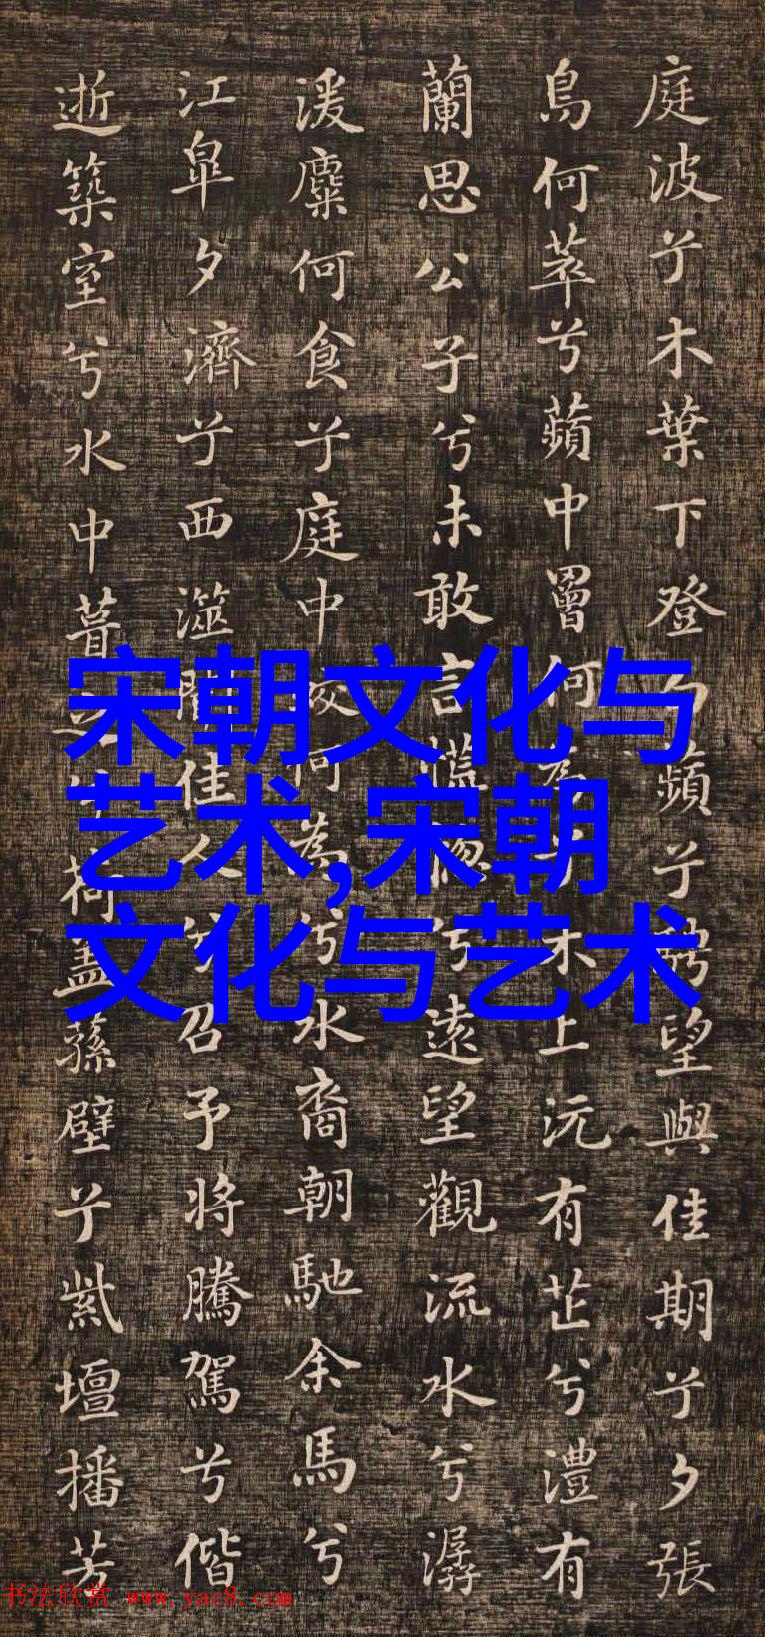 庭波兮木葉下登白薠兮騁望與佳期兮夕張
鳥何萃兮蘋中罾何為兮木上沅有芷兮澧有
蘭思公子兮未敢言慌惚兮遠望觀流水兮潺
湲麋何食兮庭中蛟何為兮水裔朝馳余馬兮
江皋夕濟兮西澨聞佳人兮召予將騰駕兮偕
逝築室兮水中葺之兮荷蓋蓀壁兮紫壇播芳
宋朝文化与
艺术,宋朝
文化与艺术
书法欣赏 www.yac8.com